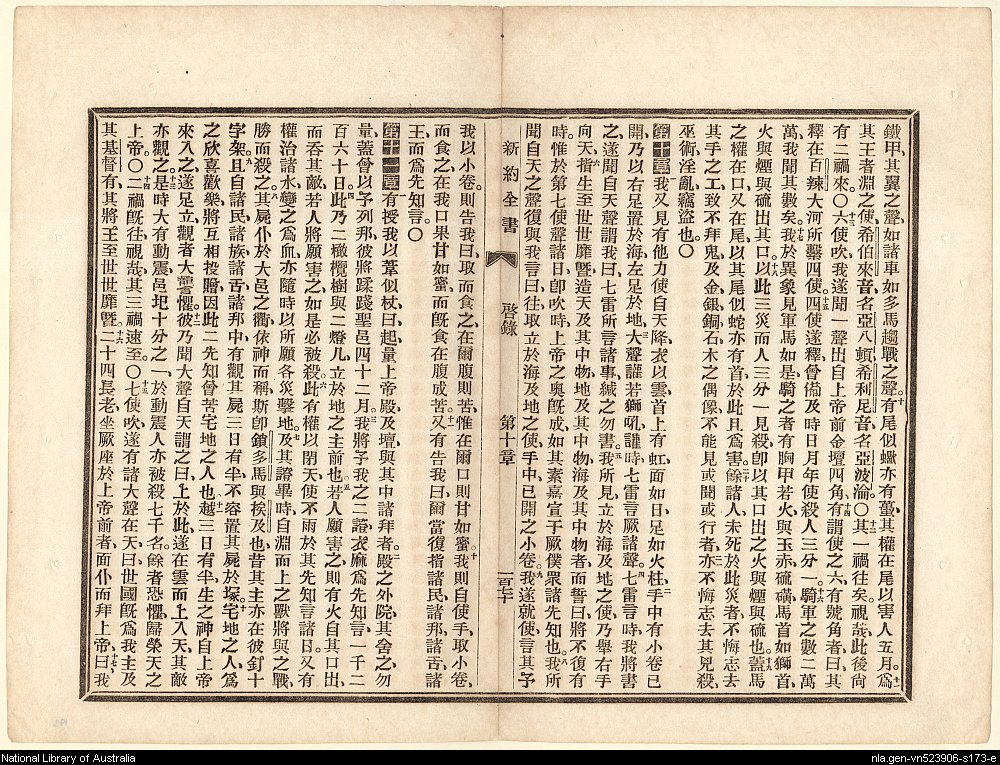 鐵甲、其翼之聲、如諸車、如多馬趨戰之聲。十有尾似蠍、亦有蠆、其權在尾、以害人五月。十一爲
其王者、淵之使、希伯來音名亞八頓、希利尼音名亞波淪。〇十二其一禍往矣、視哉、此後尙
有二禍來。〇十三六使吹、我遂聞一聲、出自上帝前金壇四角、十四有謂使之六、有號角者曰、其
釋在百辣大河所繫四使。十五四使遂釋、嘗備及時日月年、使殺人三分一。十六騎軍之數二萬
萬、我聞其數矣。十七我於異象、見軍馬如是、騎之者有胸甲若火與玉亦硫磺、馬首如獅首、
火與煙與硫出其口。十八以此三災而人三分一見殺、卽以其口出之火與煙與硫也。十九蓋馬
之權在口、又在尾、以其尾似蛇、亦有首、於此且爲害。二十餘諸人未死於此災者、不悔志去
其手之工、致不拜鬼、及金銀銅石木之偶像、不能見或聞或行者、二一亦不悔志去其兇殺、
巫術、淫亂、竊盜也。〇
第十章 一我又見有他力使自天降、衣以雲、首上有虹、面如日、足如火柱、二手中有小卷已
開、乃以右足置於海、左足於地、三大聲讙若獅吼、讙時七雷言厥諸聲。四七雷言時、我將書
之、遂聞自天聲謂我曰、七雷所言諸事緘之勿書。五我所見立於海及地之使、乃舉有手
向天、六指生至世世靡曁、造天及其中物、地及其中物、海及其中物者而誓曰、將不復有
時、七惟於第七使聲諸日、卽吹時、上帝之奧旣成、如其素嘉宣于厥僕衆諸先知也。八我所
聞自天之聲、復與我言曰、往取立於海及地之使手中已開之小卷。九我遂就使言、其予
新約全書 啓錄 第十章 一百七十
我以小卷、則告我曰、取而食之、在爾腹則苦、惟在爾口則甘如蜜。十我則自使手取小卷、
而食之、在我口果甘如蜜、而旣食在腹成苦。十一又有告我曰、爾當復指諸民諸邦諸舌諸
王而爲先知言。〇
第十一章 一有授我以葦似杖曰、起、量上帝殿及壇、與其中諸拜者。二殿之外院、其舍之勿
量、蓋曾以予列邦、彼將蹂踐聖邑四十二月。三我將予我之二證、衣麻爲先知言、一千二
百六十日。四此乃二橄欖樹與二燈儿、立於地之主前也。五若人願害之、則有火自其口出、
而吞其敵、若人將願害之、如是必被殺。六此有權以閉天、使不雨於其先知言諸日、又有
權治諸水、變之爲血、亦隨時以所願各災擊地。七及其證畢時、自淵而上之獸將與之戰、
勝而殺之。八其屍仆於大邑之衢、依神而稱、斯卽鎖多馬與挨及也、昔其主亦在彼釘十
字架。九且自諸民諸族諸舌諸邦中、有觀其屍三日有半、不容置其屍於塚。十宅地之人、爲
之欣喜歡樂、將互相投贈、因此二先知曾苦宅地之人也。十一越三日有半、生之神自上帝
來入之、遂足立、觀者大讋懼。十二彼乃聞大聲自天謂之曰、上於此、遂在雲而上入天、其敵
亦觀之。十三是時大有動震、邑圯十分之一、於動震人亦被殺七千名、餘者恐懼、歸榮天之
上帝。〇十四二禍旣往、視哉、其三禍速至。〇十五七使吹、遂有諸大聲在天曰、世國旣爲我主及
其基督有、其將王至世世靡曁。十六二十四長老、坐厥座於上帝前者、面仆而拜上帝曰、十七我
National Library of Australia
nla.gen-vn523906-s173-e